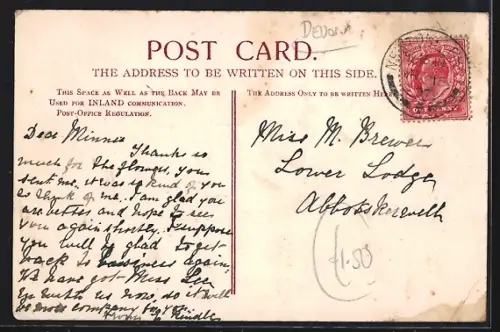 Devon
POST CARD.
THE ADDRESS TO BE WRITTEN ON THIS SIDE.
THIS SPACE AS WELL AS THE BACK MAY BE
USED FOR INLAND COMMUNICATION.
POST-OFFICE REGULATION.
THE ADDRESS ONLY TO BE WRITTEN HERE
Dear Minnie
Thanks so
much for the flowers, you
sent me, it was so kind of you
to think of me. I am glad you
are better and hope to see
you again shortly. I suppose
you will be glad to get
back to business again,
We have got Miss Lee
in with us now, so it will
be more company for you
from E Kindle
Miss M. Brewer
Lower Lodge
Abbotskerswell
1.50